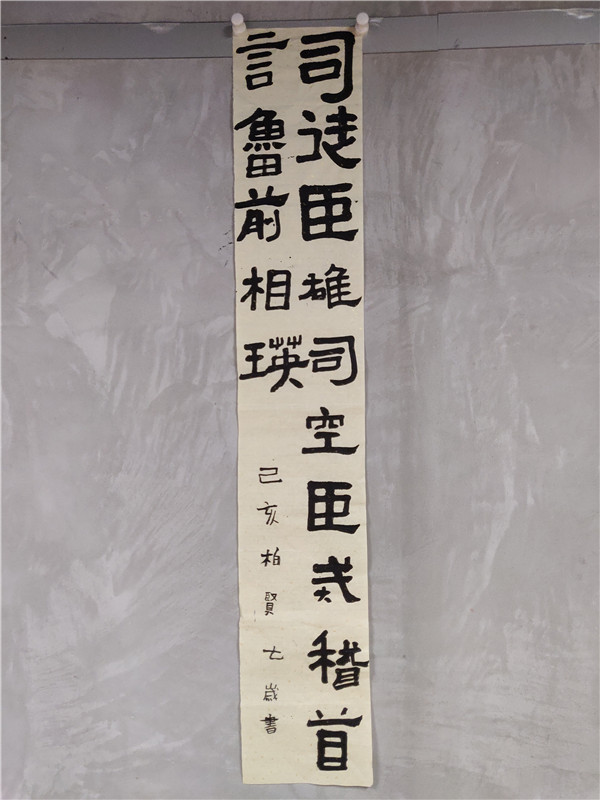 司徒臣雄司空臣戒稽首
言魯前相瑛
己亥柏賢七歲書